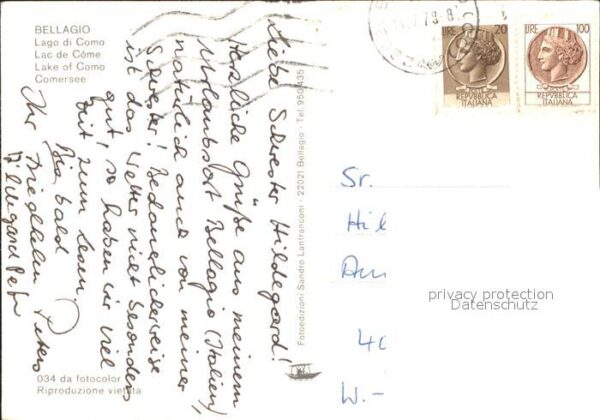 BELLAGIO
Lago di Como
Lac de Côme
Lake of Como
Comersee
Liebe Schwester Hildegard!
Herzliche Grüße aus meinem
Urlaubsort Bellagio (Italien),
natürlich auch von meiner
Schwester! Bedauerlicherweise
ist das Wetter nicht besonders
gut, so haben wir viel
Zeit zum Lesen.
Bis bald
Ihr Peters
Hildegard Pet
034 da fotocolor
Riproduzione vietata
Fotoedizioni Sandro Lanfranconi - 22021 Bellagio - Tel. 950435
7.78-8
LIRE 20
REPVBBLICA
ITALIANA
LIRE 100
REPVBBLICA
ITALIANA
Sr.
Hil
40
W.-
privacy protection
Datenschutz